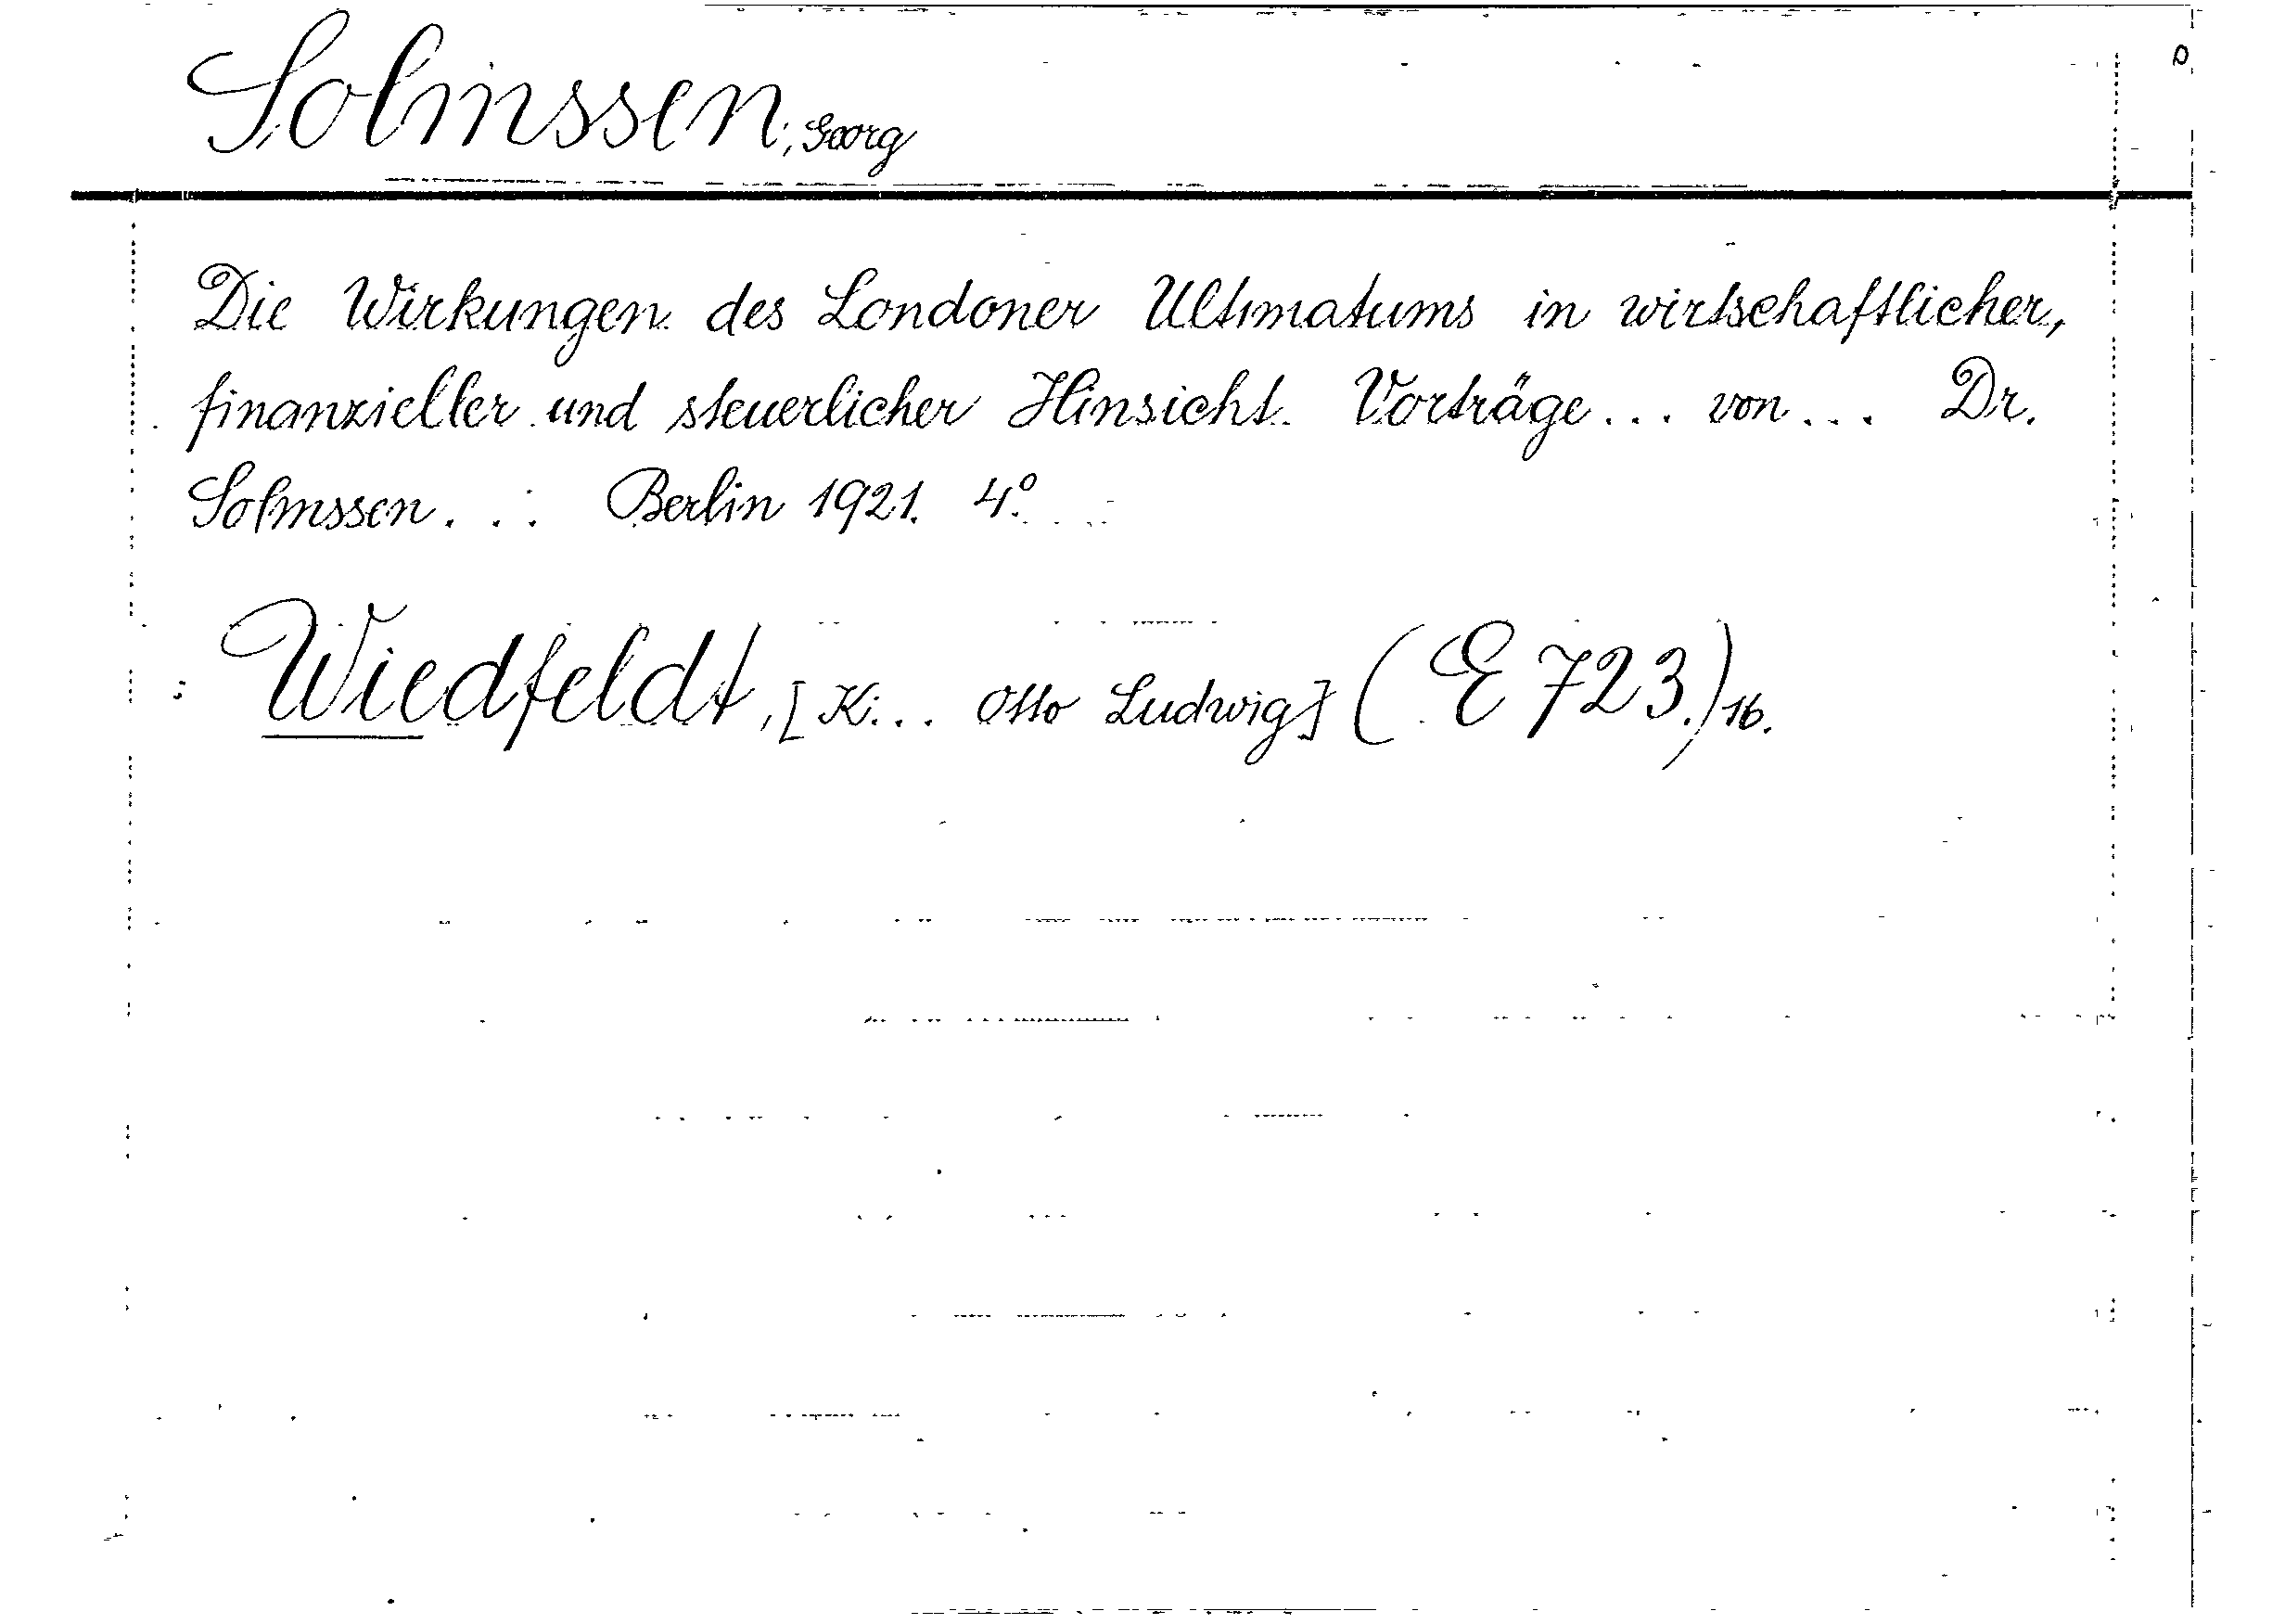 Solmssen, Georg
Die Wirkungen des Londoner Ultimatums in wirtschaftlicher,
finanzieller und steuerlicher Hinsicht. Vorträge... von... Dr.
Solmssen... Berlin 1921. 4°.
Wiedfeldt, [K... Otto Ludwig] (E 723.) 16.